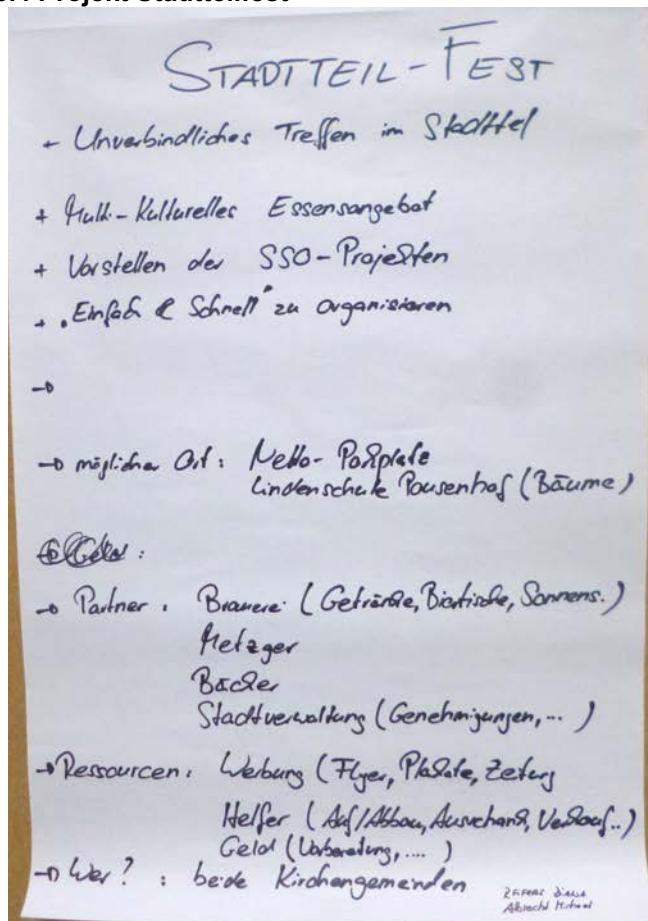 STADTTEIL-FEST
+ Unverbindliches Treffen im Stadtteil
+ Multi-Kulturelles Essensangebot
+ Vorstellen der SSO-Projekten
+ "Einfach & Schnell" zu organisieren
→
→ möglicher Ort: Netto-Parkplatz
Lindenschule Pausenhof (Bäume)
→ Partner: Brauerei (Getränke, Biertische, Sonnens.)
Metzger
Bäcker
Stadtverwaltung (Genehmigungen, ...)
→ Ressourcen: Werbung (Flyer, Plakate, Zeitung
Helfer (Auf/Abbau, Ausschank, Verkauf..)
Geld (Vorbereitung, ....)
→ Wer? : beide Kirchengemeinden
Albrecht Michael